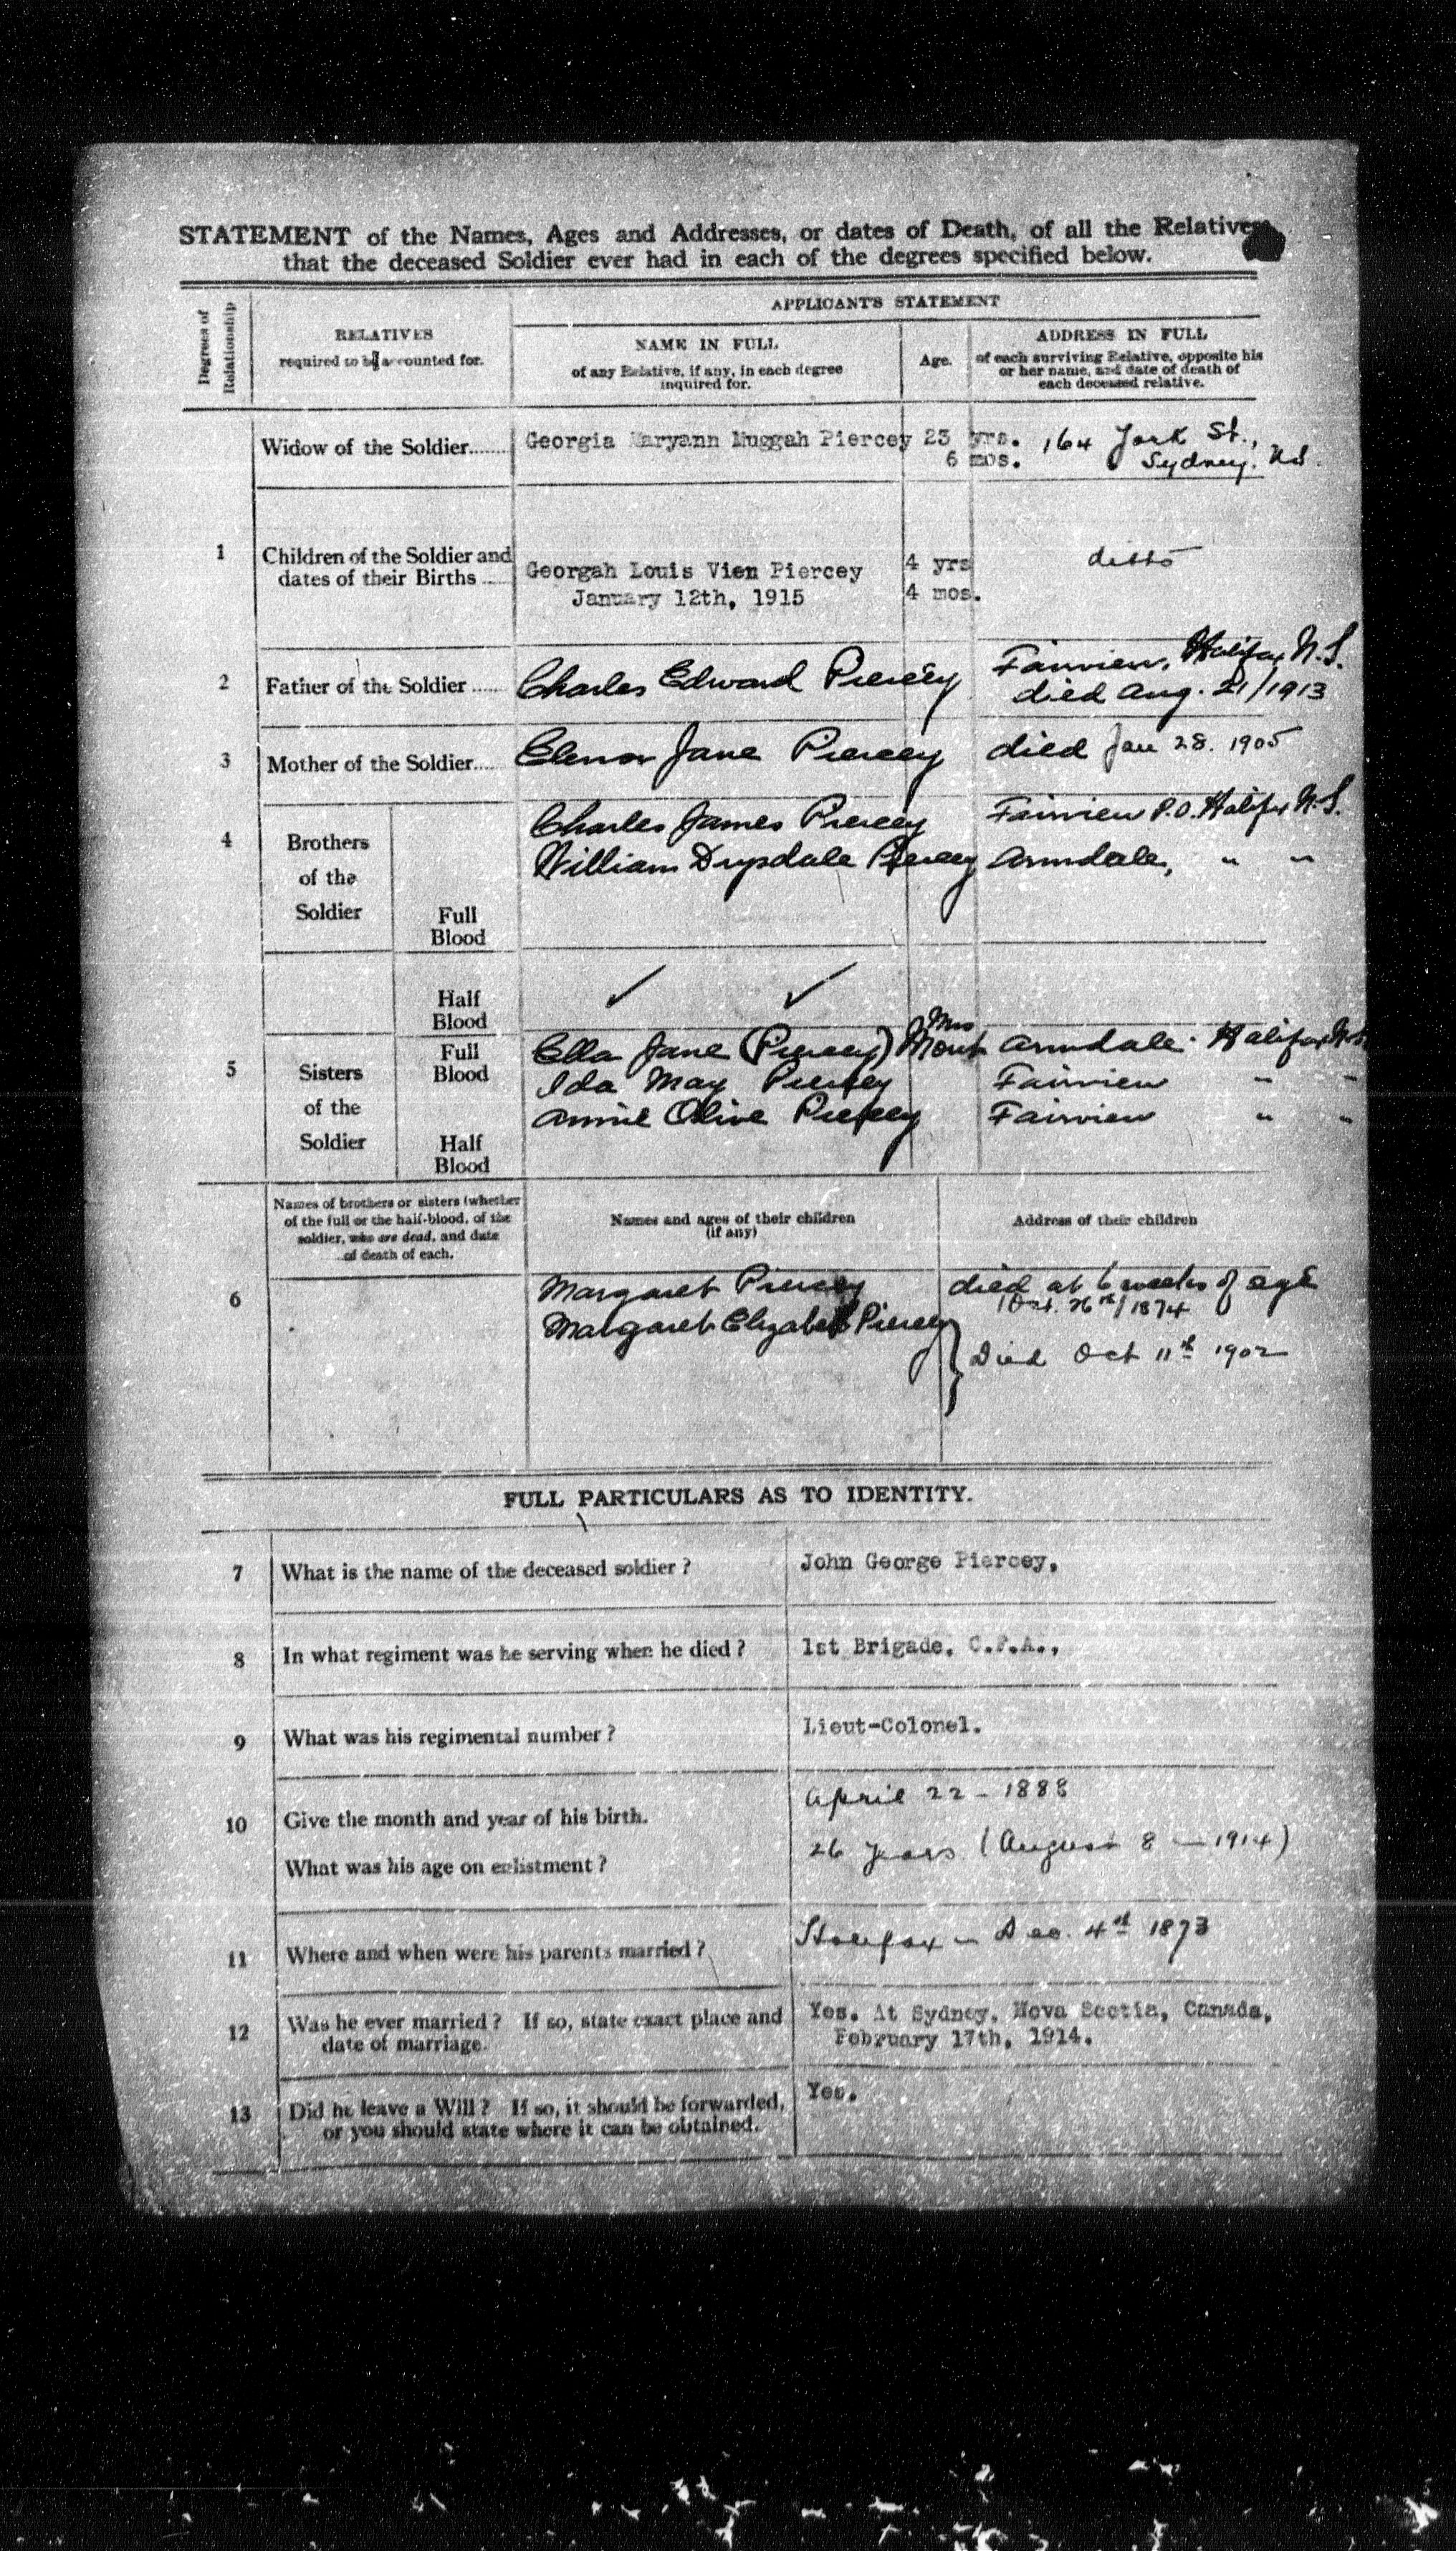 STATEMENT of the Names, Ages and Addresses, or dates of Death, of all the Relatives
that the deceased Soldier ever had in each of the degrees specified below.
Degrees of
Relationship
RELATIVES
required to be accounted for.
APPLICANT'S STATEMENT
NAME IN FULL
of any Relative, if any, in each degree
inquired for.
Age.
ADDRESS IN FULL
of each surviving Relative, opposite his
or her name, and date of death of
each deceased relative.
Widow of the Soldier........ Georgia Maryann Muggah Piercey 23 yrs. 164 York St.,
6 mos. Sydney. N.S.
1 Children of the Soldier and
dates of their Births ..... Georgah Louis Vien Piercey 4 yrs ditto
January 12th, 1915 4 mos.
2 Father of the Soldier ..... Charles Edward Piercey Fairview, Halifax N.S.
died Aug. 21/1913
3 Mother of the Soldier..... Elenor Jane Piercey died Jan 28. 1905
4 Brothers
of the
Soldier
Full
Blood
Charles James Piercey Fairview P.O. Halifax N.S.
William Drysdale Piercey Armdale, " "
Half
Blood
5 Sisters
of the
Soldier
Full
Blood
Ella Jane (Piercey) Mrs Mont Armdale. Halifax N.S.
Ida May Piercey Fairview " "
Annie Olive Piercey Fairview " "
Half
Blood
6 Names of brothers or sisters (whether
of the full or the half-blood, of the
soldier, who are dead, and date
of death of each.
Names and ages of their children
(if any)
Address of their children
Margaret Piercey died at 6 weeks of age
Oct. 26th/1874
Margaret Elizabeth Piercey
Died Oct 11th 1902
FULL PARTICULARS AS TO IDENTITY.
7 What is the name of the deceased soldier? John George Piercey,
8 In what regiment was he serving when he died? 1st Brigade, C.F.A.,
9 What was his regimental number? Lieut-Colonel.
10 Give the month and year of his birth. April 22 - 1888
What was his age on enlistment? 26 years (August 8 - 1914)
11 Where and when were his parents married? Halifax - Dec. 4th 1873
12 Was he ever married? If so, state exact place and
date of marriage.
Yes. At Sydney, Nova Scotia, Canada,
February 17th, 1914.
13 Did he leave a Will? If so, it should be forwarded,
or you should state where it can be obtained.
Yes.